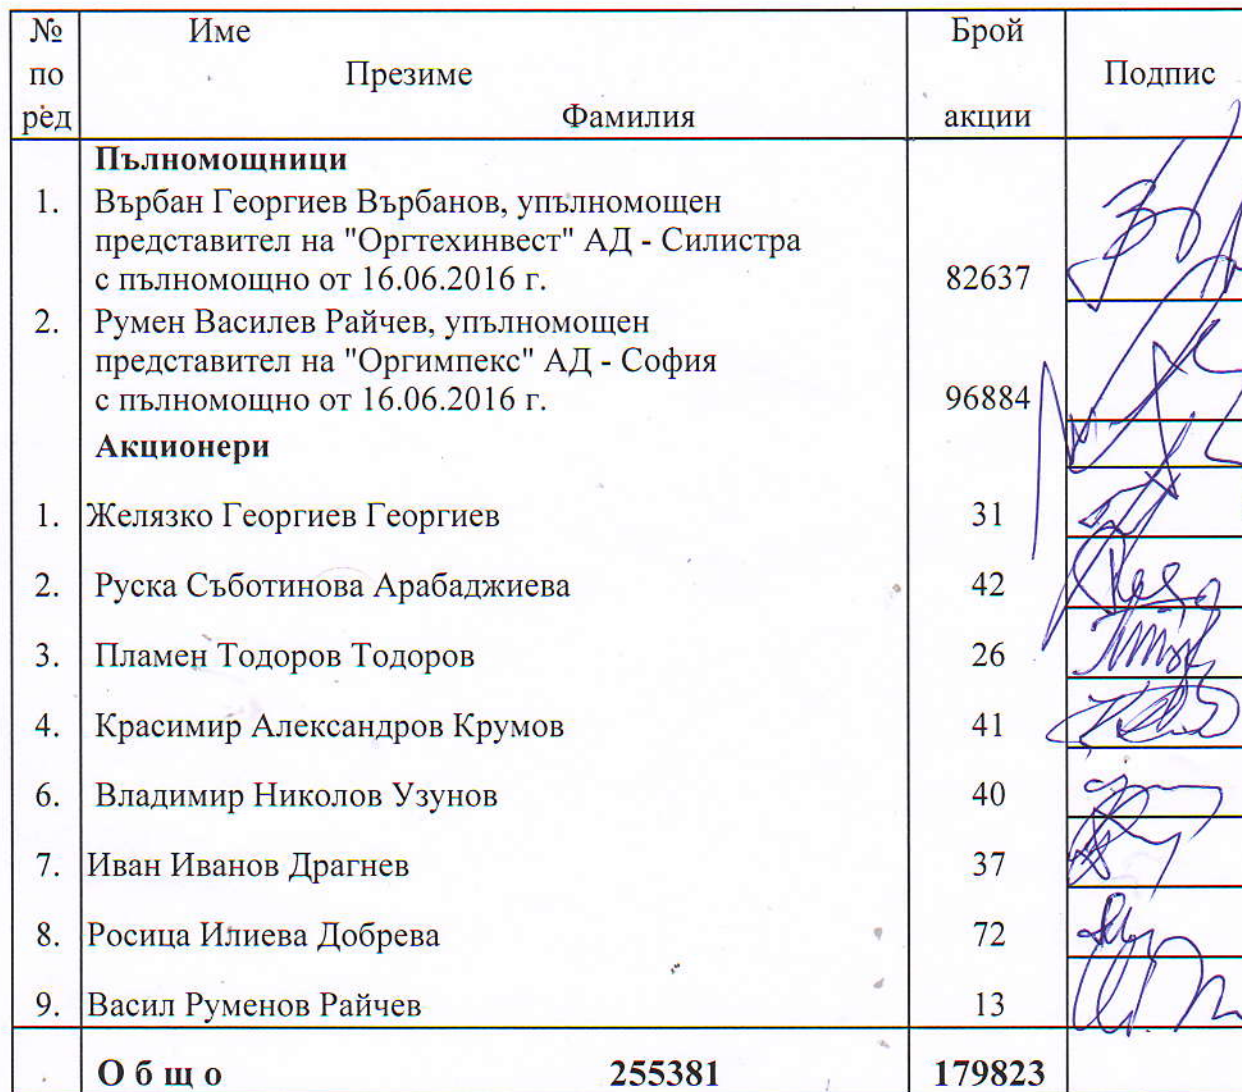 № Име Брой
по Презиме Подпис
ред Фамилия акции
Пълномощници
1. Върбан Георгиев Върбанов, упълномощен
представител на "Оргтехинвест" АД - Силистра
с пълномощно от 16.06.2016 г. 82637
2. Румен Василев Райчев, упълномощен
представител на "Оргимпекс" АД - София
с пълномощно от 16.06.2016 г. 96884
Акционери
1. Желязко Георгиев Георгиев 31
2. Руска Съботинова Арабаджиева 42
3. Пламен Тодоров Тодоров 26
4. Красимир Александров Крумов 41
6. Владимир Николов Узунов 40
7. Иван Иванов Драгнев 37
8. Росица Илиева Добрева 72
9. Васил Руменов Райчев 13
О б щ о 255381 179823